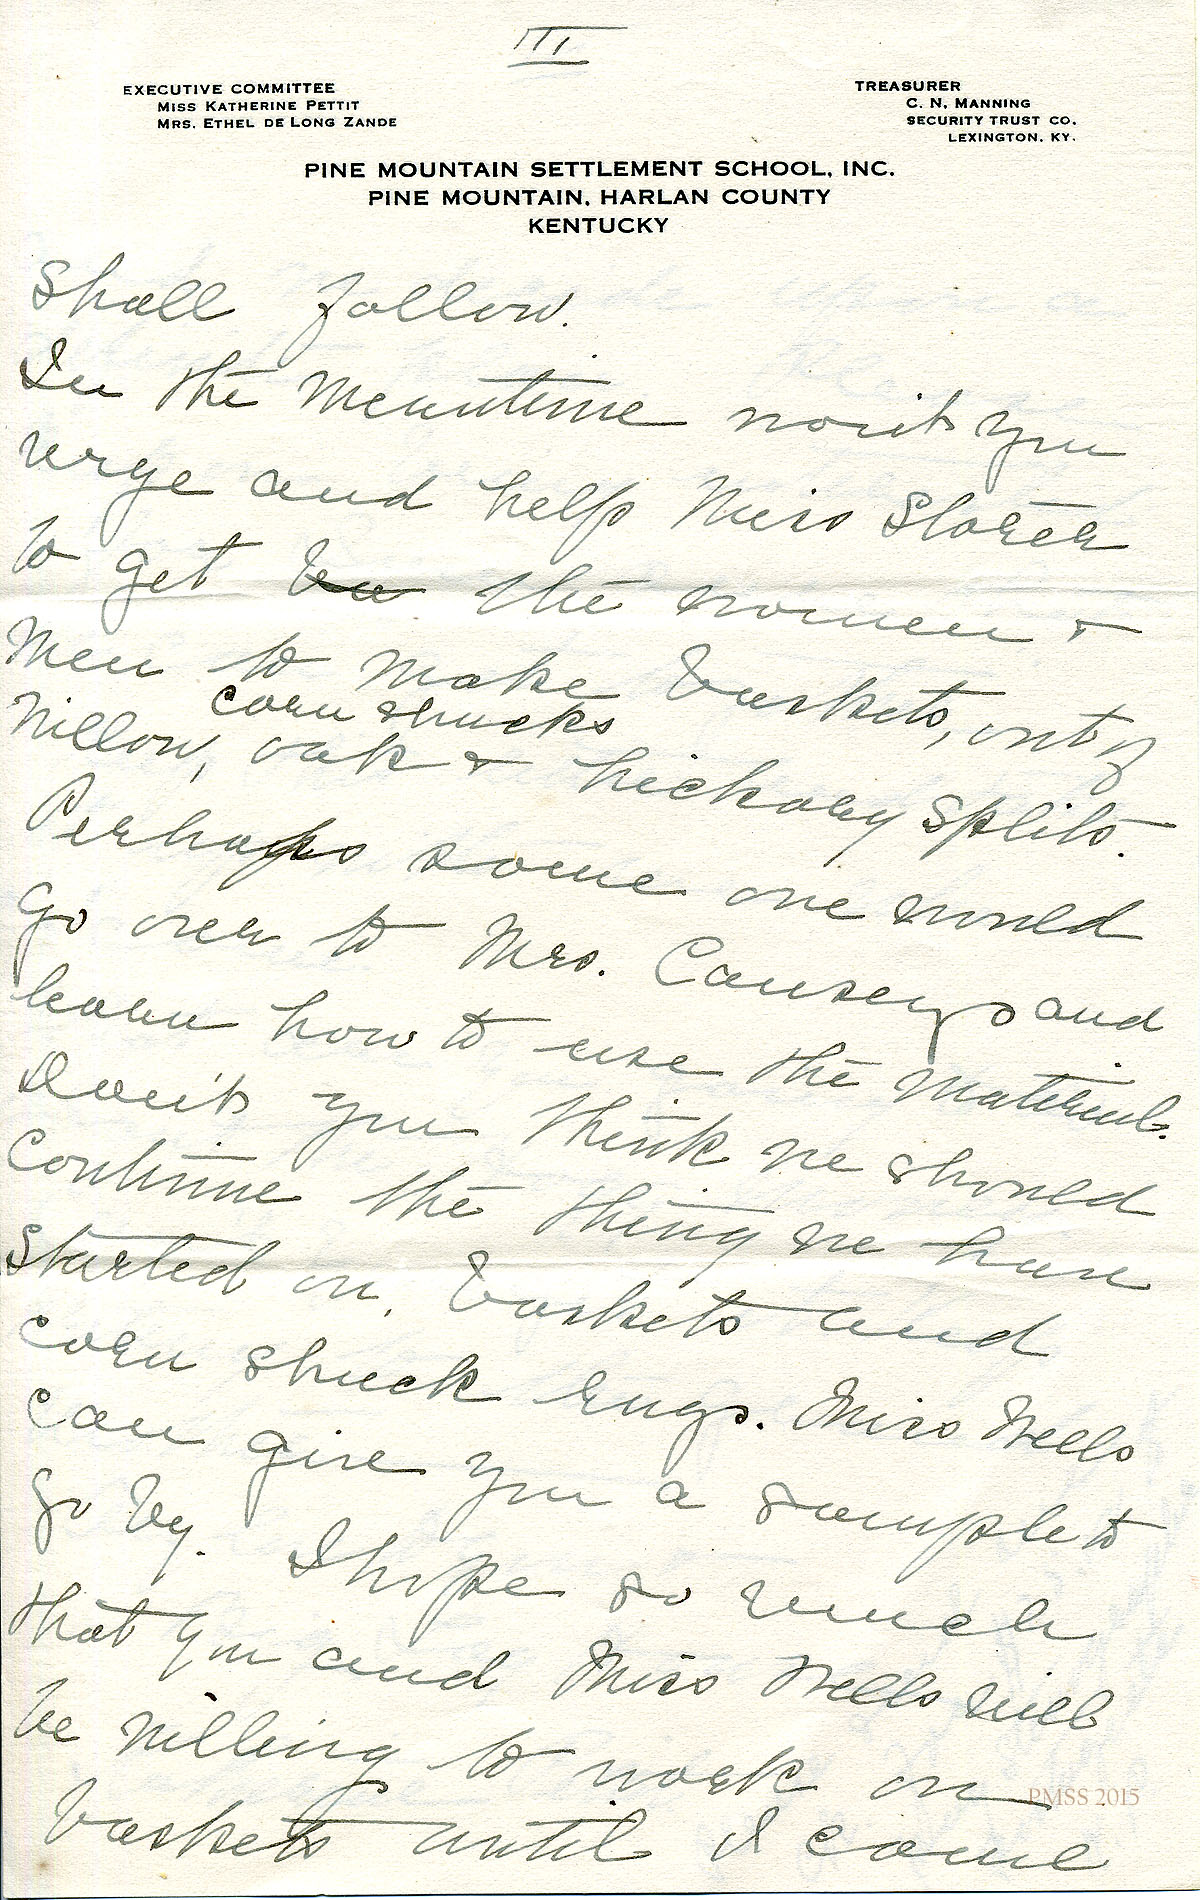 III
EXECUTIVE COMMITTEE
MISS KATHERINE PETTIT
MRS. ETHEL DE LONG ZANDE
TREASURER
C. N. MANNING
SECURITY TRUST CO.
LEXINGTON, KY.
PINE MOUNTAIN SETTLEMENT SCHOOL, INC.
PINE MOUNTAIN, HARLAN COUNTY
KENTUCKY
Shall follow.
In the Meantime won't you
urge and help Miss Storer
to get the women &
Men to make baskets, out of
corn shucks
Willow, oak & hickory splits.
Perhaps some one would
go over to Mrs. Causeys and
learn how to use the material.
Don't you think we should
Continue the thing we have
started on, baskets and
corn shuck rugs. Miss Wells
can give you a sample to
go by. I hope so much
that you and Miss Wells will
be willing to work on
baskets until I come
PMSS 2015